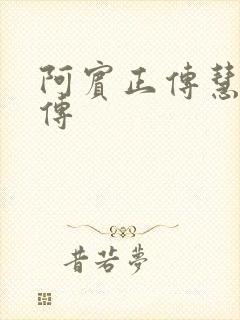 阿賓正傳慧
傳
昔若夢